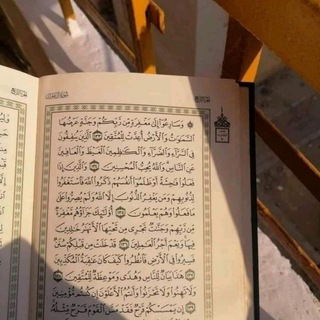 الجزء الرابع
سورة آل عمران
۞ وَسَارِعُوٓا۟ إِلَىٰ مَغْفِرَةٍ مِّن رَّبِّكُمْ وَجَنَّةٍ عَرْضُهَا
ٱلسَّمَـٰوَٰتُ وَٱلْأَرْضُ أُعِدَّتْ لِلْمُتَّقِينَ ١٣٣ ٱلَّذِينَ يُنفِقُونَ
فِى ٱلسَّرَّآءِ وَٱلضَّرَّآءِ وَٱلْكَـٰظِمِينَ ٱلْغَيْظَ وَٱلْعَافِينَ
عَنِ ٱلنَّاسِ وَٱللَّهُ يُحِبُّ ٱلْمُحْسِنِينَ ١٣٤ وَٱلَّذِينَ إِذَا
فَعَلُوا۟ فَـٰحِشَةً أَوْ ظَلَمُوٓا۟ أَنفُسَهُمْ ذَكَرُوا۟ ٱللَّهَ فَٱسْتَغْفَرُوا۟
لِذُنُوبِهِمْ وَمَن يَغْفِرُ ٱلذُّنُوبَ إِلَّا ٱللَّهُ وَلَمْ يُصِرُّوا۟ عَلَىٰ
مَا فَعَلُوا۟ وَهُمْ يَعْلَمُونَ ١٣٥ أُو۟لَـٰٓئِكَ جَزَآؤُهُم مَّغْفِرَةٌ
مِّن رَّبِّهِمْ وَجَنَّـٰتٌ تَجْرِى مِن تَحْتِهَا ٱلْأَنْهَـٰرُ خَـٰلِدِينَ
فِيهَا وَنِعْمَ أَجْرُ ٱلْعَـٰمِلِينَ ١٣٦ قَدْ خَلَتْ مِن قَبْلِكُمْ سُنَنٌ
فَسِيرُوا۟ فِى ٱلْأَرْضِ فَٱنظُرُوا۟ كَيْفَ كَانَ عَـٰقِبَةُ ٱلْمُكَذِّبِينَ
هَـٰذَا بَيَانٌ لِّلنَّاسِ وَهُدًى وَمَوْعِظَةٌ لِّلْمُتَّقِينَ ١٣٨
وَلَا تَهِنُوا۟ وَلَا تَحْزَنُوا۟ وَأَنتُمُ ٱلْأَعْلَوْنَ إِن كُنتُم مُّؤْمِنِينَ
إِن يَمْسَسْكُمْ قَرْحٌ فَقَدْ مَسَّ ٱلْقَوْمَ قَرْحٌ مِّثْلُهُۥ